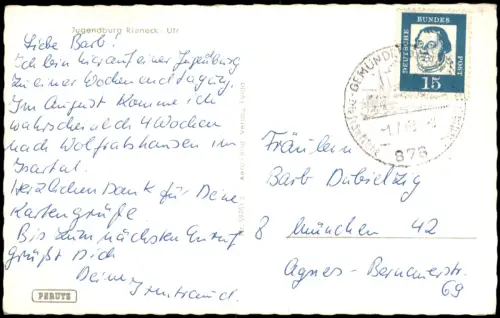 Jugendburg Rieneck
Liebe Barb.
Ich bin hier auf einer Jugendburg
zu einer Wochenendtagung.
Im August komme ich
wahrscheinlich 4 Wochen
nach Wolfratshausen im
Isartal.
Herzlichen Dank für Deine
Kartengrüße
Bis zum nächsten
grüßt Dich
Deine Irmtraud.
PERUTZ
DEUTSCHE BUNDESPOST
15
GEMÜND
878
Fräulein
Barb
8 München 42
Agnes-Bernauerstr.
69